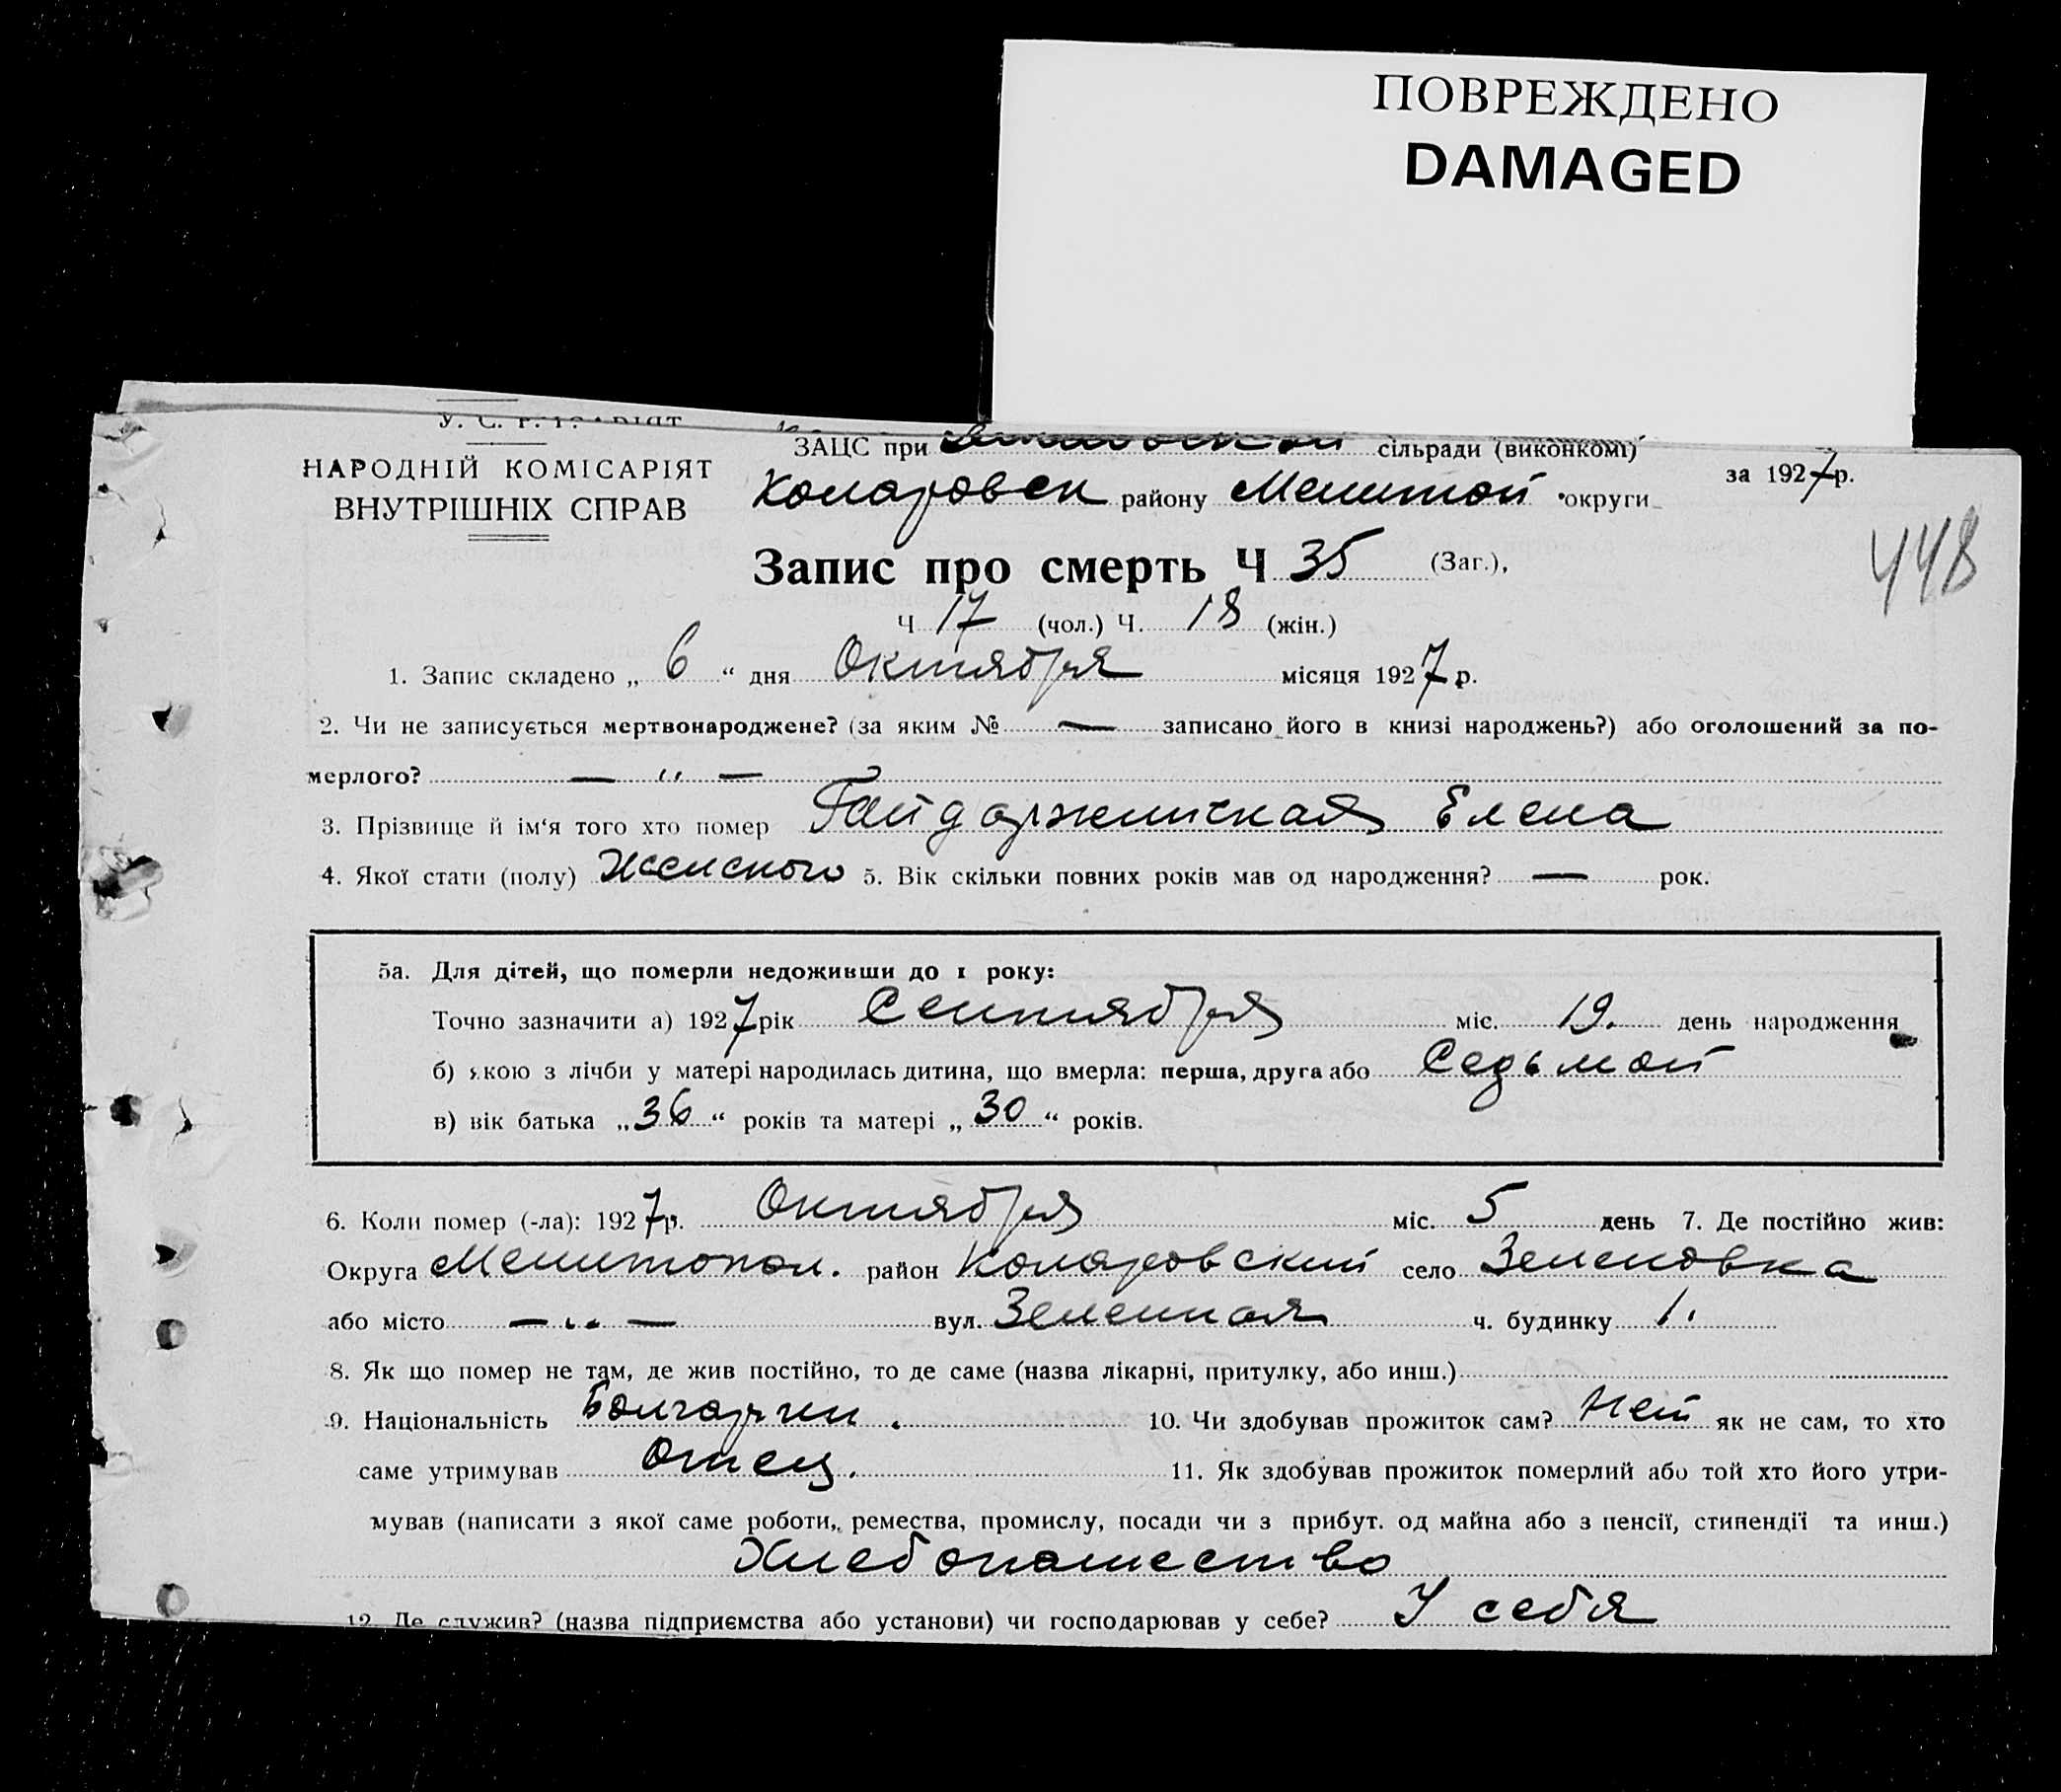 ПОВРЕЖДЕНО
DAMAGED
ЗАЦС при сільради (виконкомі)
за 1927р.
НАРОДНІЙ КОМІСАРІЯТ
ВНУТРІШНІХ СПРАВ
Коларовск району Мелитой округи
448
Запис про смерть Ч 35 (Заг.),
Ч 17 (чол.) Ч. 18 (жін.)
1. Запис складено „ 6 “ дня Октября місяця 1927 р.
2. Чи не записується мертвонароджене? (за яким № — записано його в книзі народжень?) або оголошений за по-
мерлого? — „ —
3. Прізвище й ім‘я того хто помер Гайдаржийская Елена
4. Якої стати (полу) Женского 5. Вік скільки повних років мав од народження? — рок.
5а. Для дітей, що померли недоживши до 1 року:
Точно зазначити а) 1927 рік Сентября міс. 19. день народження
б) якою з лічби у матері народилась дитина, що вмерла: перша, друга або Седьмой
в) вік батька „36“ років та матері „30“ років.
6. Коли помер (-ла): 1927р. Октября міс. 5 день 7. Де постійно жив:
Округа Мелитопол. район Коларовский село Зеленовка
або місто — „ — вул. Зеленная ч. будинку 1.
8. Як що помер не там, де жив постійно, то де саме (назва лікарні, притулку, або инш.)
9. Національність Болгарин. 10. Чи здобував прожиток сам? Нет як не сам, то хто
саме утримував Отец. 11. Як здобував прожиток померлий або той хто його утри-
мував (написати з якої саме роботи, ремества, промислу, посади чи з прибут. од майна або з пенсії, стипендії та инш.)
Хлебопашество
12. Де служив? (назва підприємства або установи) чи господарював у себе? У себя